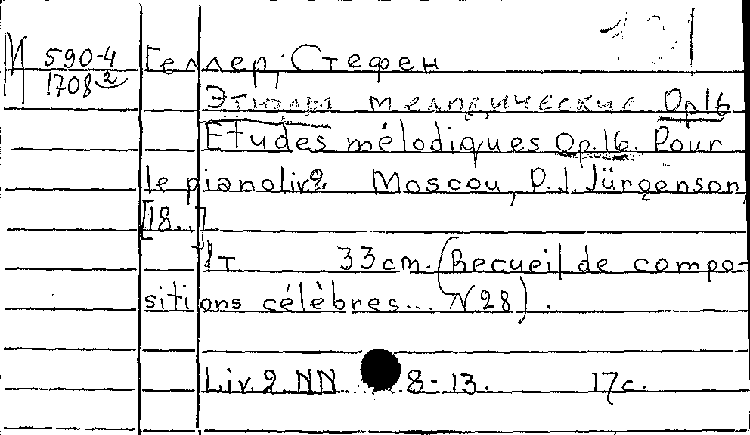 М 590-4 Геллер, Стефен
1708-2
Этюды мелодические Op.16
Etudes mélodiques Op.16. Pour
le piano liv.2. Moscou, P.J. Jürgenson,
[18..]
1т 33cm. (Recueil de compo-
sitions célèbres... N28).
Liv. 2. NN 8-13. 17с.